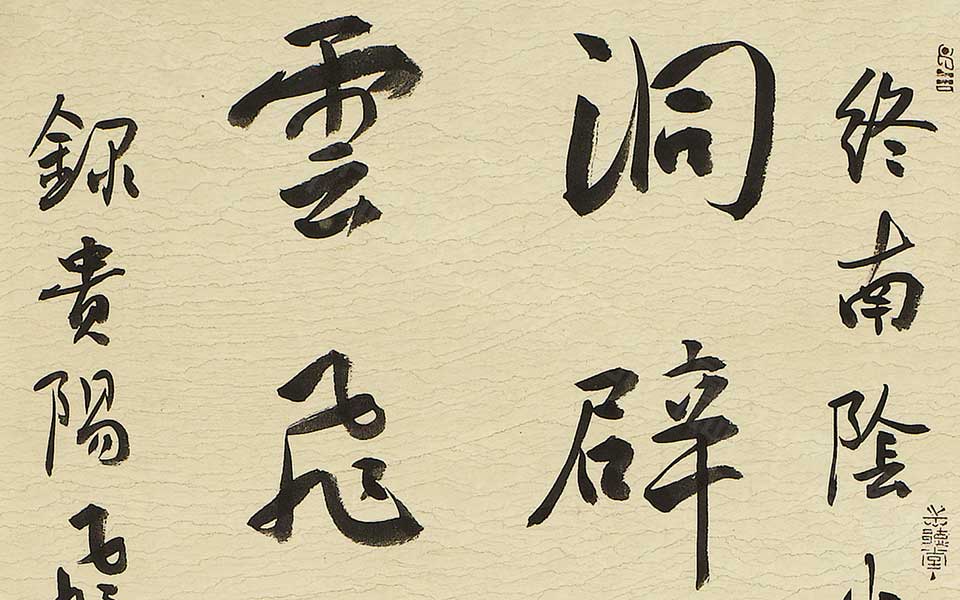 終南陰
洞辟
雲飛
録貴陽